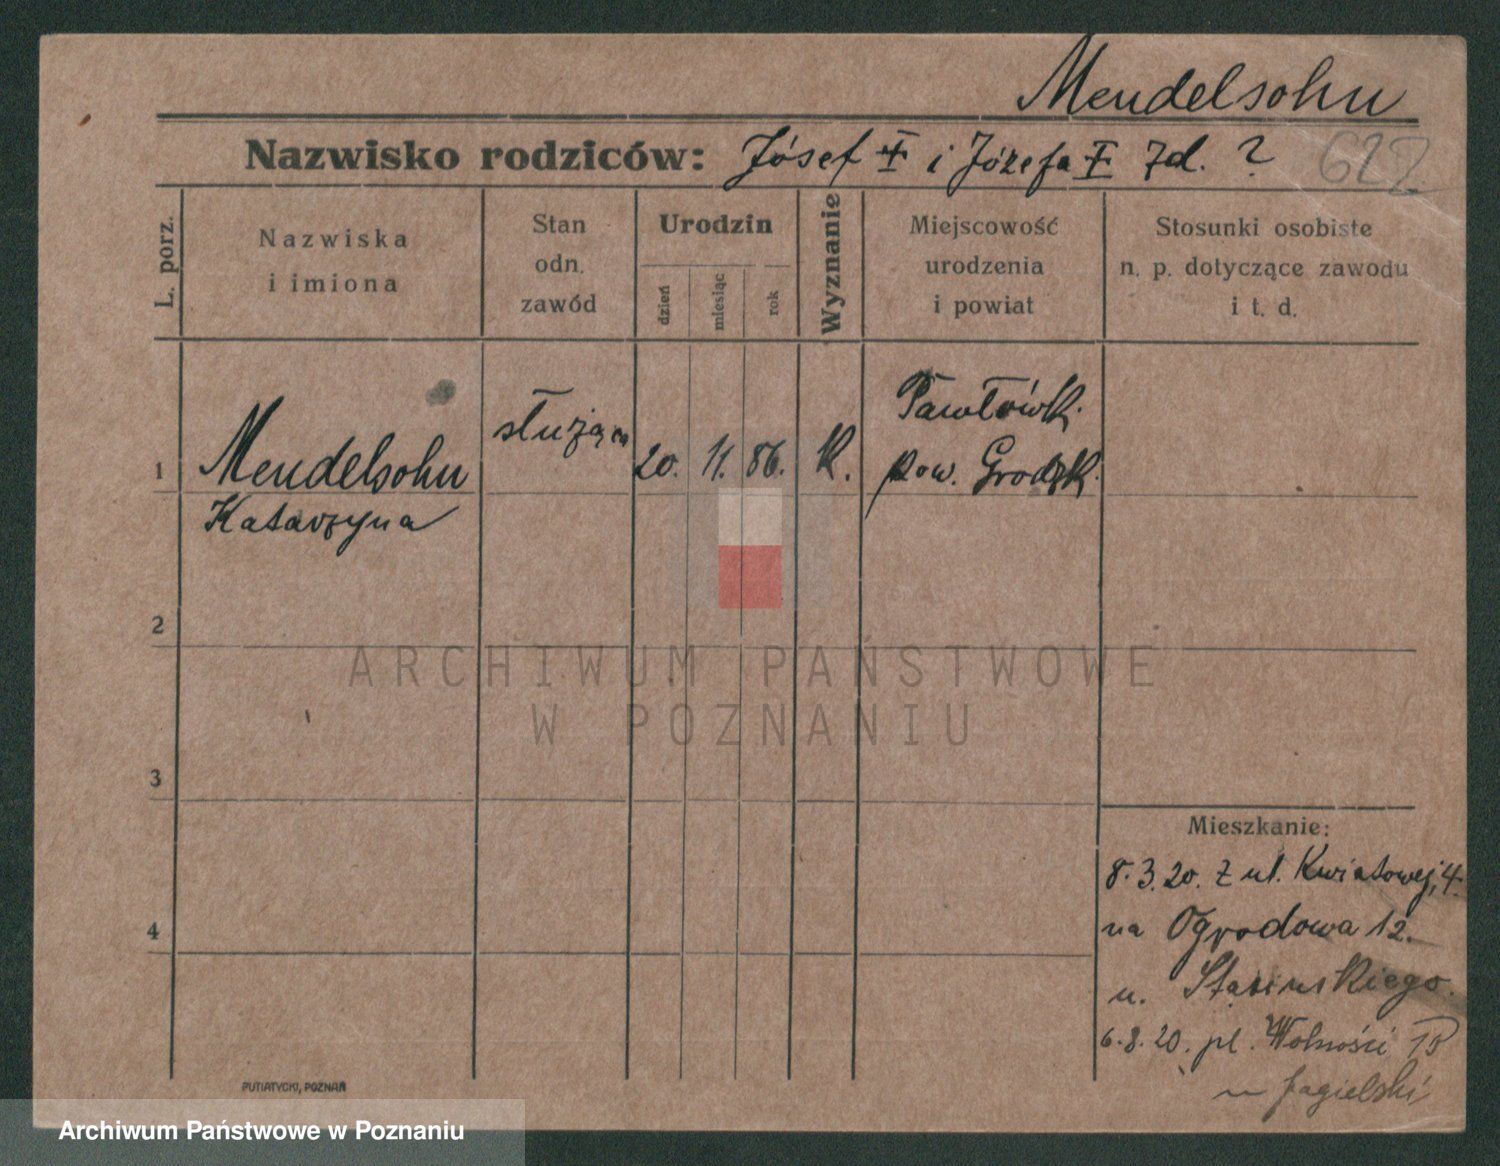 Mendelsohn
Nazwisko rodziców: Józef † i Józefa † zd. ?
622
L. porz.
Nazwiska
i imiona
Stan
odn.
zawód
Urodzin
dzień
miesiąc
rok
Wyznanie
Miejscowość
urodzenia
i powiat
Stosunki osobiste
n. p. dotyczące zawodu
i t. d.
1
Mendelsohn
Katarzyna
służąca
20. 11. 86. K.
Pawłówk.
pow. Grodzk.
2
3
4
Mieszkanie:
8.3.20. z ul. Kwiatowej, 4.
na Ogrodowa 12.
u. Stasińskiego.
6.8.20. pl. Wolności
u Jagielski
PUTIATYCKI, POZNAŃ
ARCHIWUM PAŃSTWOWE
W POZNANIU
Archiwum Państwowe w Poznaniu